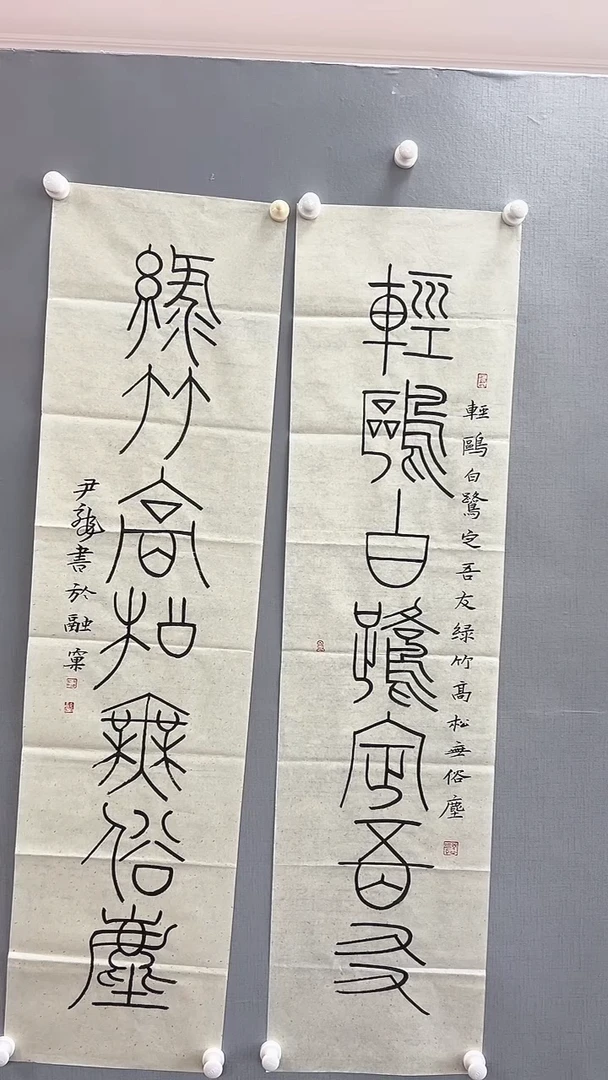 輕鷗白鷺定吾友
輕鷗白鷺定吾友绿竹高松無俗塵
緑竹高松無俗塵
尹龍書於融窠